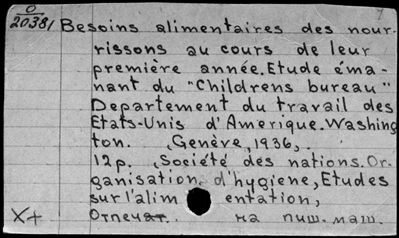 0
20381 Besoins alimentaires des nour-
rissons au cours de leur
première année. Etude éma-
nant du "Childrens bureau"
Departement du travail des
Etats-Unis d'Amerique. Washing
ton. Genève, 1936,.
12p. Société des nations. Or-
ganisation d'hygiene, Etudes
sur l'alim entation,
X+ Отпечат. на пиш. маш.